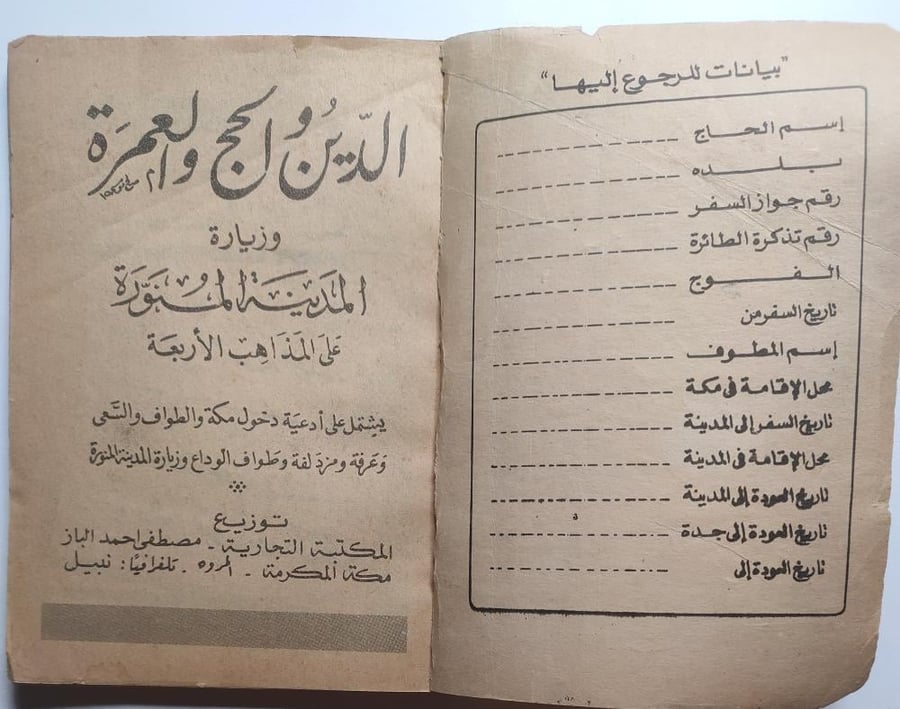 "بيانات للرجوع إليها"
إسم الحاج
بلده
رقم جواز السفر
رقم تذكرة الطائرة
الفوج
تاريخ السفر من
إسم المطوف
محل الإقامة فى مكة
تاريخ السفر إلى المدينة
محل الإقامة فى المدينة
تاريخ العودة إلى المدينة
تاريخ العودة إلى جدة
تاريخ العودة إلى
الدّين والحج والعمرة
وزيارة
المدينة المنوّرة
على المذاهب الأربعة
يشتمل على أدعية دخول مكة والطواف والسّعى
وعرفة ومزدلفة وطواف الوداع وزيارة المدينة المنورة
توزيع
المكتبة التجارية - مصطفى احمد الباز
مكة المكرمة - المروه - تلغرافيًا: نبيل